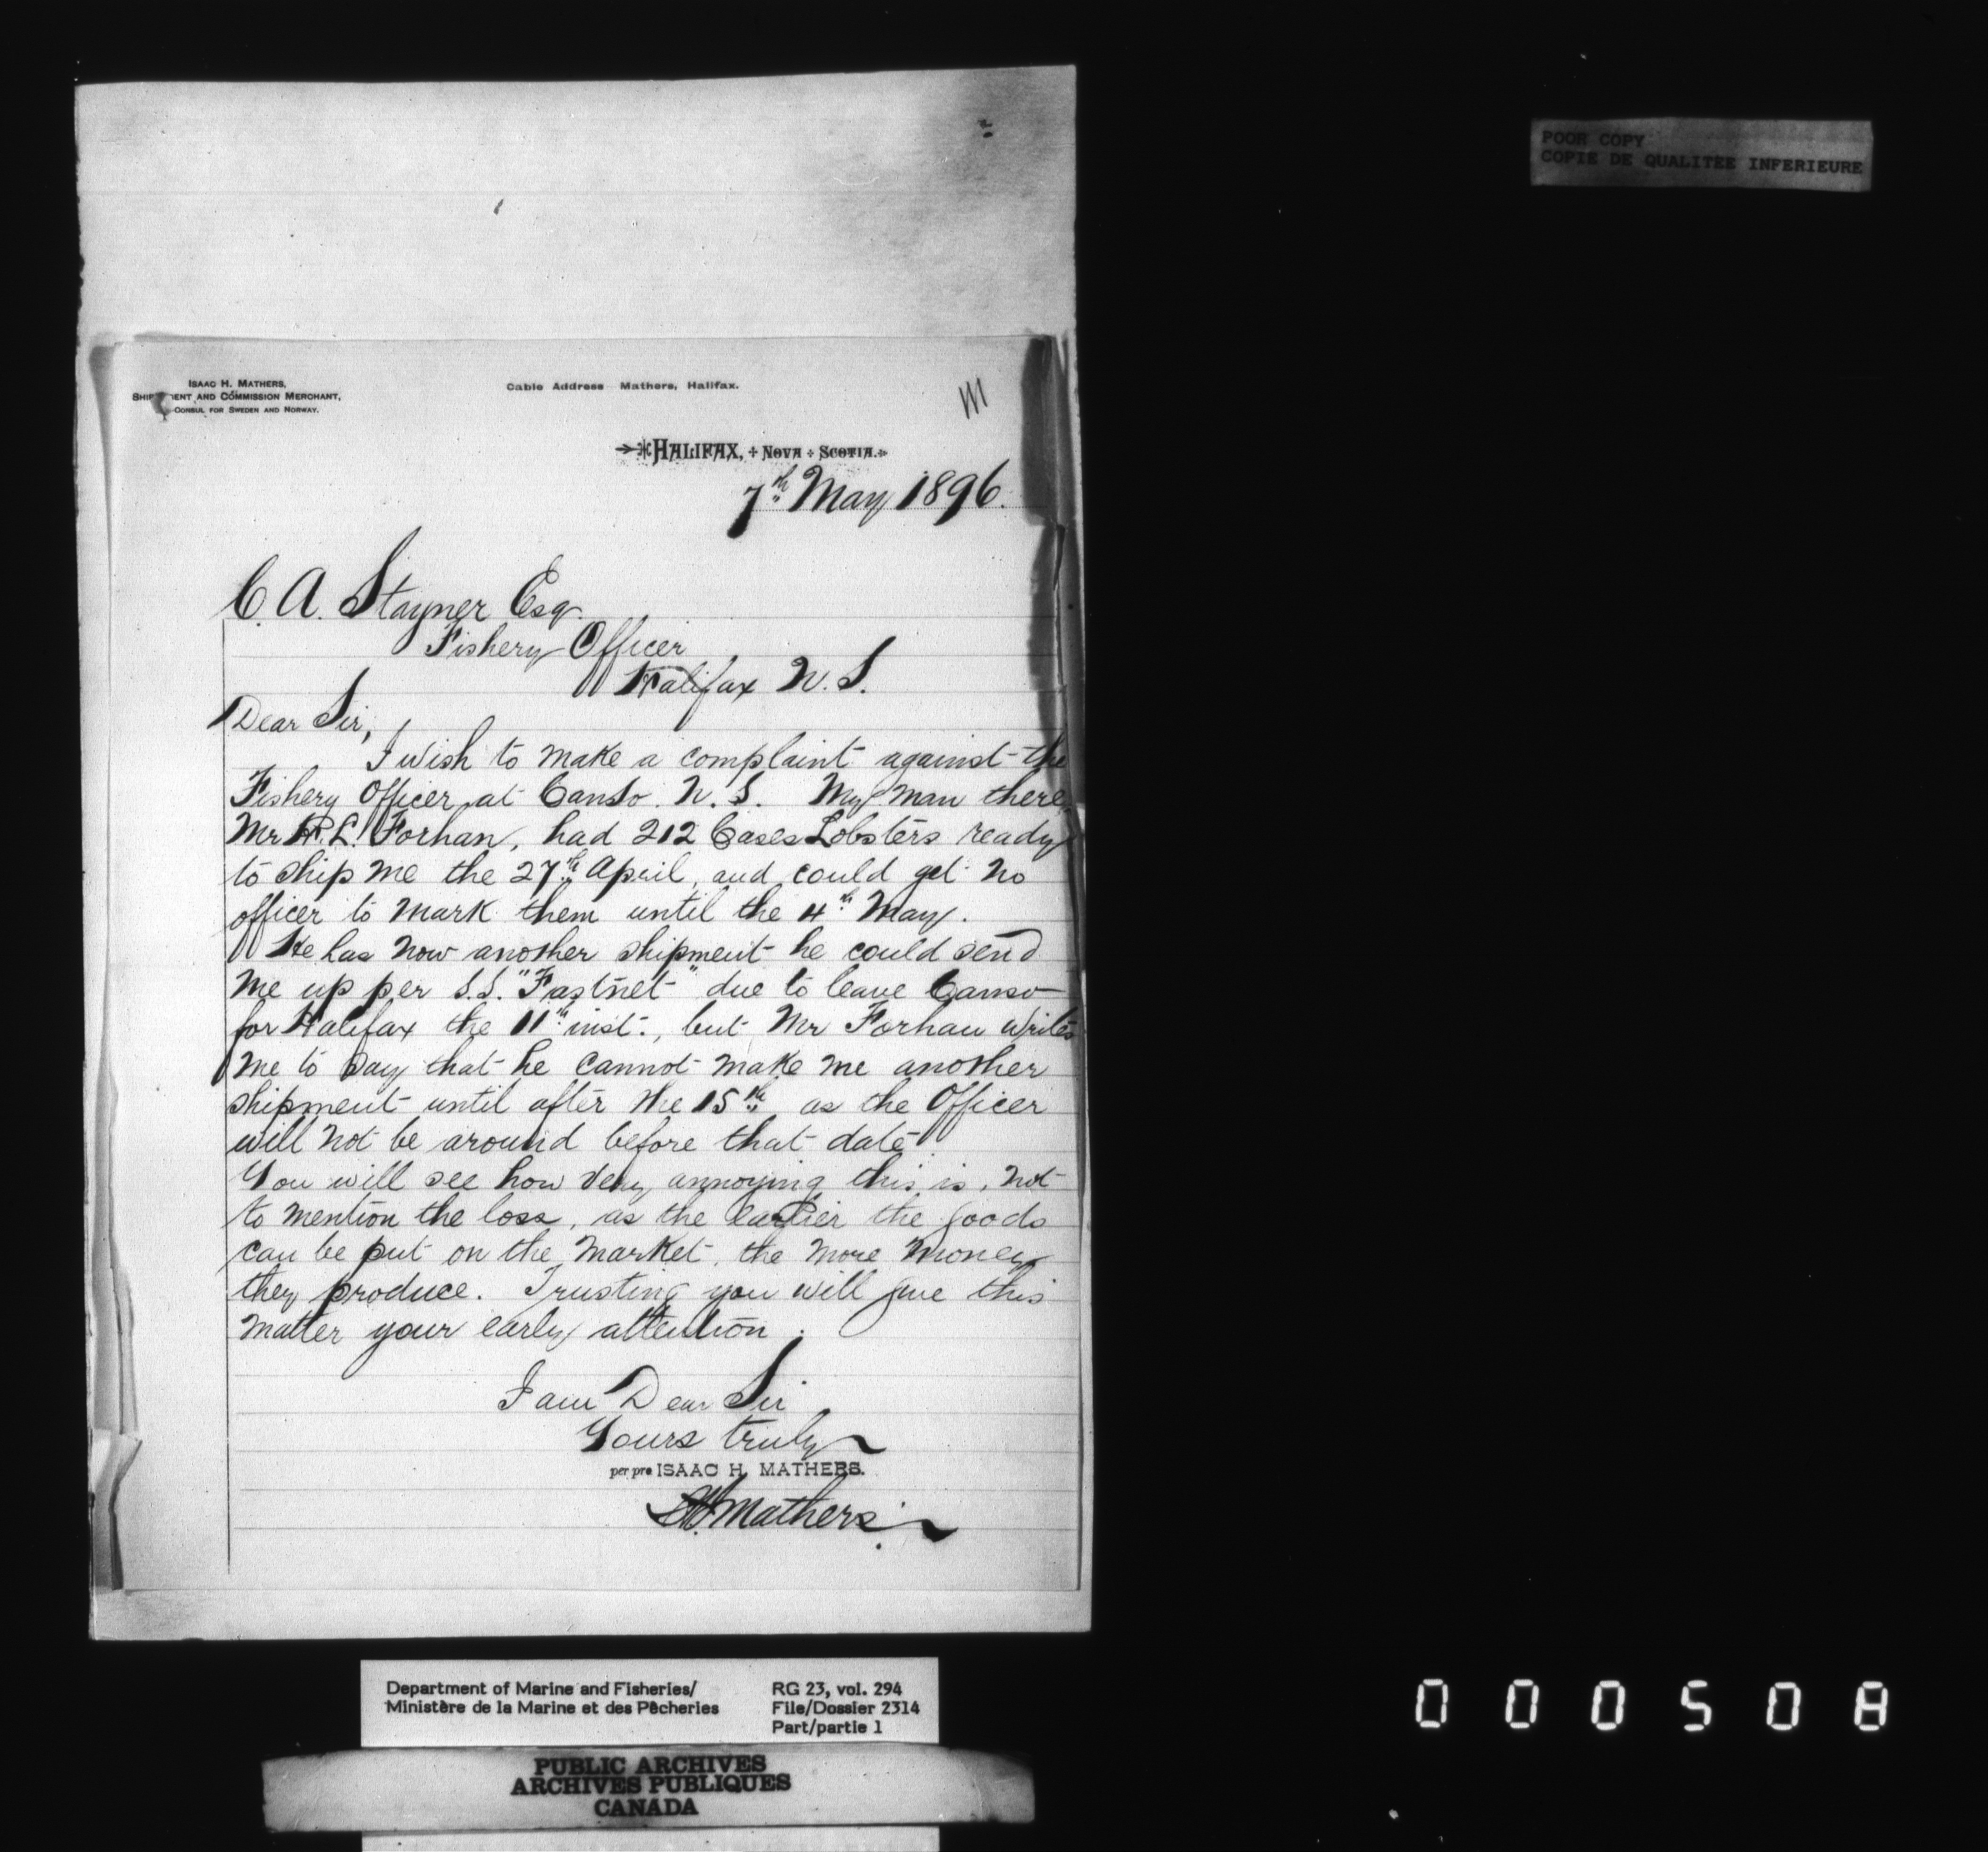 POOR COPY
COPIE DE QUALITEE INFERIEURE
ISAAC H. MATHERS,
AND COMMISSION MERCHANT,
CONSUL FOR SWEDEN AND NORWAY.
Cable Address Mathers, Halifax.
HALIFAX, NOVA SCOTIA.
7th May 1896.
C. A. Stayner Esq.
Fishery Officer
Halifax N.S.
Dear Sir,
I wish to make a complaint against the
Fishery Officer at Canso. N.S. My man there,
Mr R. L. Forhan, had 212 Cases Lobsters ready
to ship me the 27th April, and could get no
officer to mark them until the 4th May.
He has now another shipment he could send
me up per S.S. "Fastnet" due to leave Canso
for Halifax the 11th inst., but Mr Forhan writes
me to day that he cannot make me another
shipment until after the 15th as the Officer
will not be around before that date.
You will see how very annoying this is, not
to mention the loss, as the earlier the goods
can be put on the market, the more money
they produce. Trusting you will give this
matter your early attention.
I am Dear Sir
Yours truly
per pro ISAAC H. MATHERS.
Mathers
Department of Marine and Fisheries/ RG 23, vol. 294
Ministère de la Marine et des Pêcheries File/Dossier 2314
Part/partie 1
PUBLIC ARCHIVES
ARCHIVES PUBLIQUES
CANADA
000508